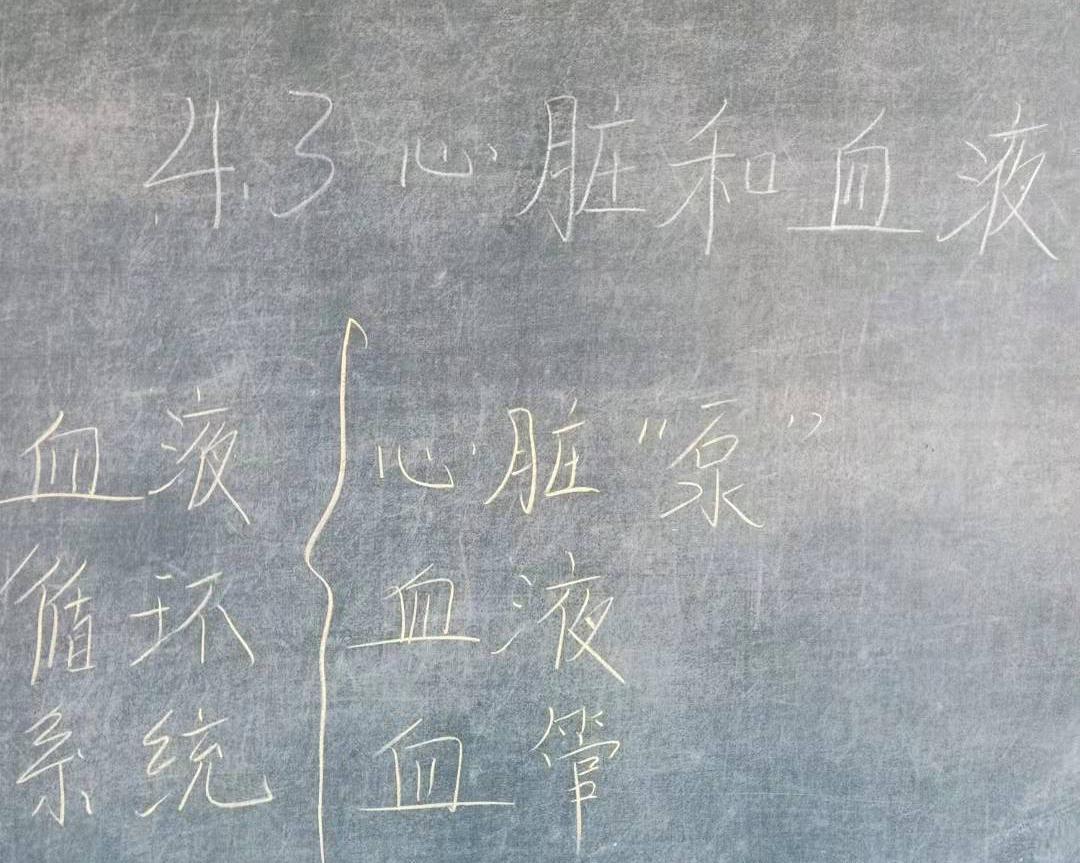 4.3 心脏和血液
血液循环系统
心脏“泵”
血液
血管